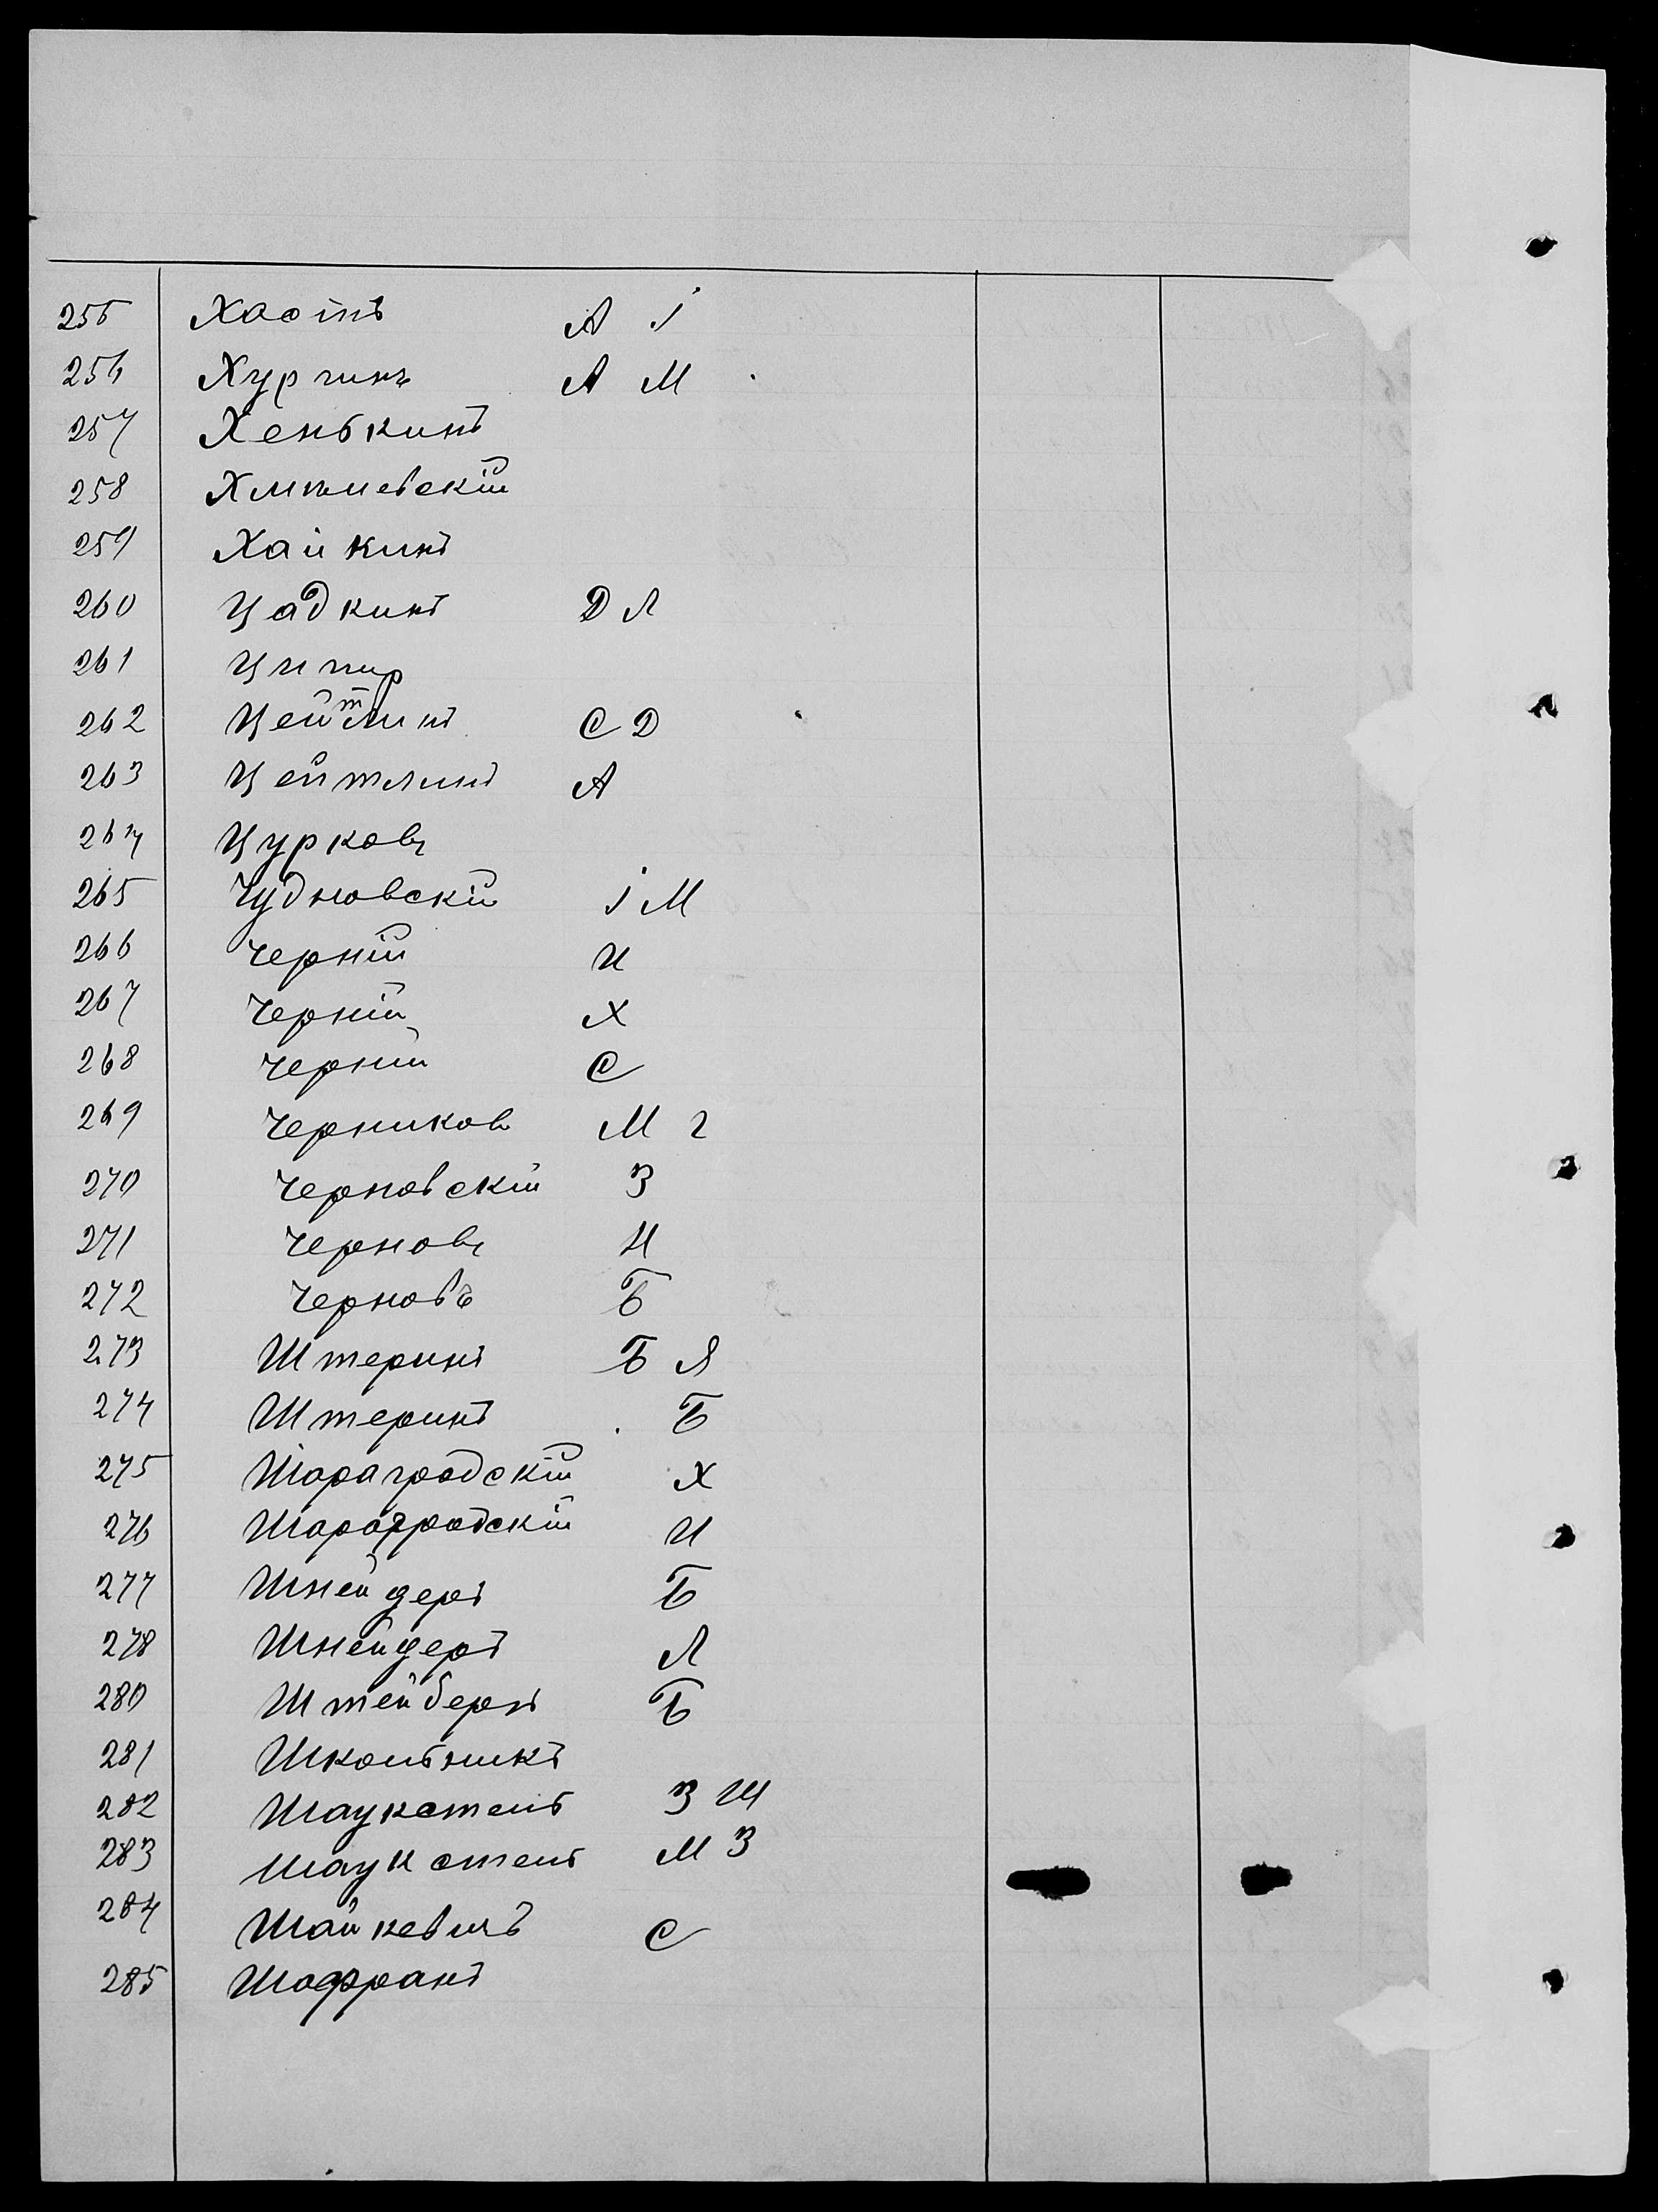 255 Хаотъ А І
256 Хургинъ А М
257 Хенькинъ
258 Хмѣлевскій
259 Хайкинъ
260 Цадкинъ Д Л
261 Ципир
262 Цейтлинъ С Д
263 Цейтлинъ А
264 Цурковъ
265 Чудновскій І М
266 Черній И
267 Черній Х
268 Черній С
269 Черниковъ М Г
270 Черновскій З
271 Черновъ Н
272 Черновъ Б
273 Штеринъ Б Я
274 Штеринъ Б
275 Шарагродскій Х
276 Шарагродскій И
277 Шнейдеръ Б
278 Шнейдеръ Л
280 Штейбергъ Б
281 Школьникъ
282 Шаукстель З Ш
283 Шаукстель М З
284 Шайкевичъ С
285 Шафранъ